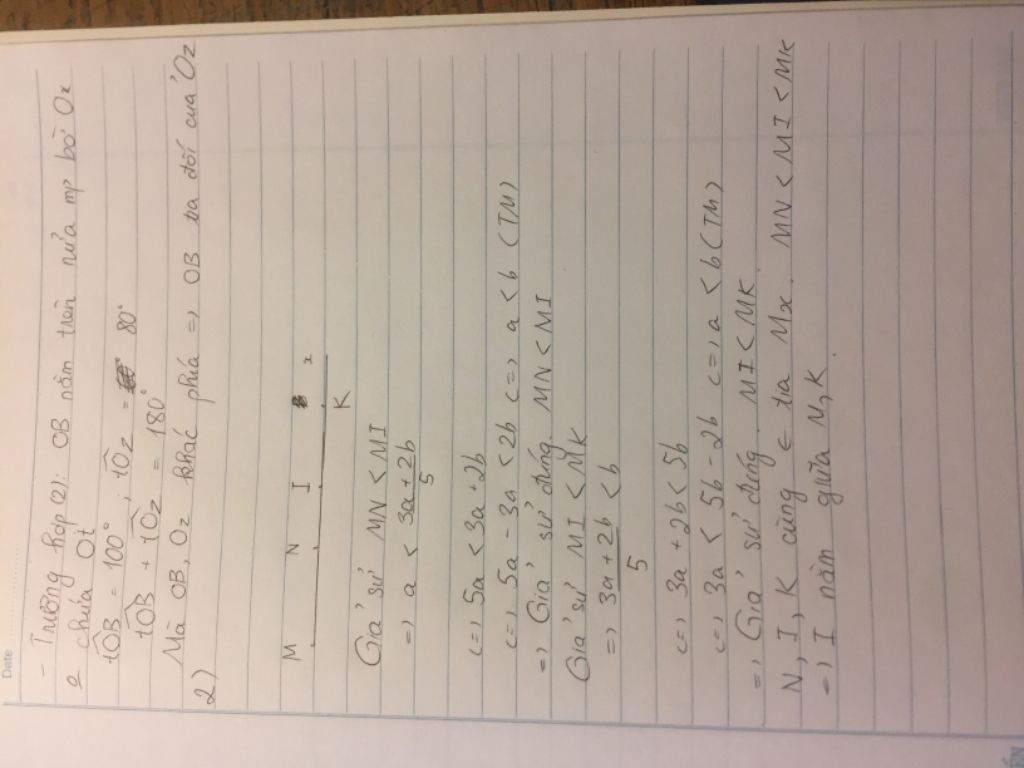 Date
- Trường hợp (2): OB nằm trên nửa mp bờ Ox
chứa Ot
tOB = 100°; tOz = 80°
tOB + tOz = 180°
Mà OB, Oz khác phía => OB tia đối của Oz
2)
M N I K x
Giả sử MN < MI
=> a < (3a + 2b)/5
<=> 5a < 3a + 2b
<=> 5a - 3a < 2b <=> a < b (TM)
=> Giả sử đúng. MN < MI
Giả sử MI < MK
=> (3a + 2b)/5 < b
<=> 3a + 2b < 5b
<=> 3a < 5b - 2b <=> a < b (TM)
=> Giả sử đúng. MI < MK.
N, I, K cùng ∈ tia Mx. MN < MI < MK
=> I nằm giữa N, K